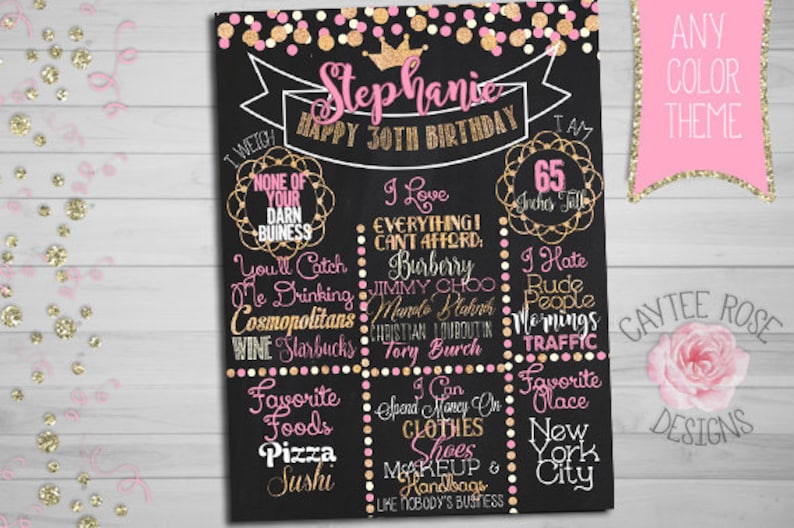 Stephanie
HAPPY 30TH BIRTHDAY
I WEIGH
NONE OF
YOUR
DARN
BUINESS
I AM
65
Inches Tall
I Love
EVERYTHING I
CAN'T AFFORD:
Burberry
JIMMY CHOO
Manolo Blahnik
CHRISTIAN LOUBOUTIN
Tory Burch
You'll Catch
Me Drinking
Cosmopolitans
WINE Starbucks
I Hate
Rude
People
Mornings
TRAFFIC
Favorite
Foods
Pizza
Sushi
I Can
Spend Money On
CLOTHES
Shoes
MAKEUP &
Handbags
LIKE NOBODY'S BUSINESS
Favorite
Place
New
York
City
ANY
COLOR
THEME
CAYTEE ROSE
DESIGNS